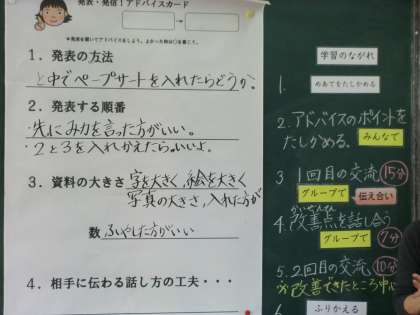 発表・発信！アドバイスカード
★発表を聞いてアドバイスをしよう。よかった所は○を書こう。
1. 発表の方法
と中でペープサートを入れたらどうか?
2. 発表する順番
・先にみ力を言った方がいい。
・2と3を入れかえたら。いいよ。
3. 資料の大きさ 字を大きく,絵を大きく
写真の大きさ,入れた方が
数 ふやした方がいい
4. 相手に伝わる話し方の工夫・・・
学習のながれ
1. めあてをたしかめる
2. アドバイスのポイントを
たしかめる. みんなで
3 1回目の交流 15分
グループで 伝え合い
かいぜんてん
4. 改善点を話し合う
グループで 7分
5. 2回目の交流 10分
※改善できたところ中心
6 ふりかえる